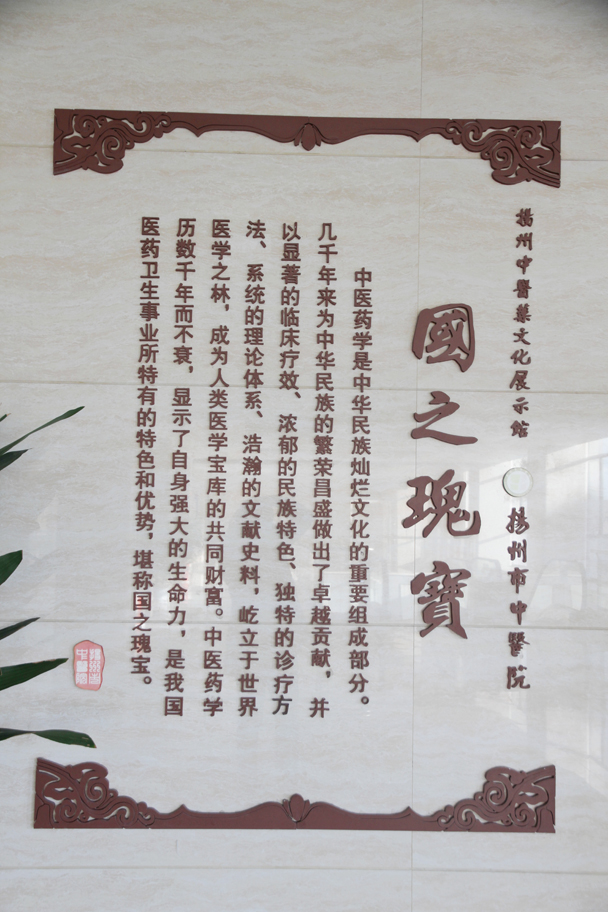 揚州中醫藥文化展示館
揚州市中醫院
國之瑰寶
中医药学是中华民族灿烂文化的重要组成部分。
几千年来为中华民族的繁荣昌盛做出了卓越贡献，并
以显著的临床疗效、浓郁的民族特色、独特的诊疗方
法、系统的理论体系、浩瀚的文献史料，屹立于世界
医学之林，成为人类医学宝库的共同财富。中医药学
历数千年而不衰，显示了自身强大的生命力，是我国
医药卫生事业所特有的特色和优势，堪称国之瑰宝。